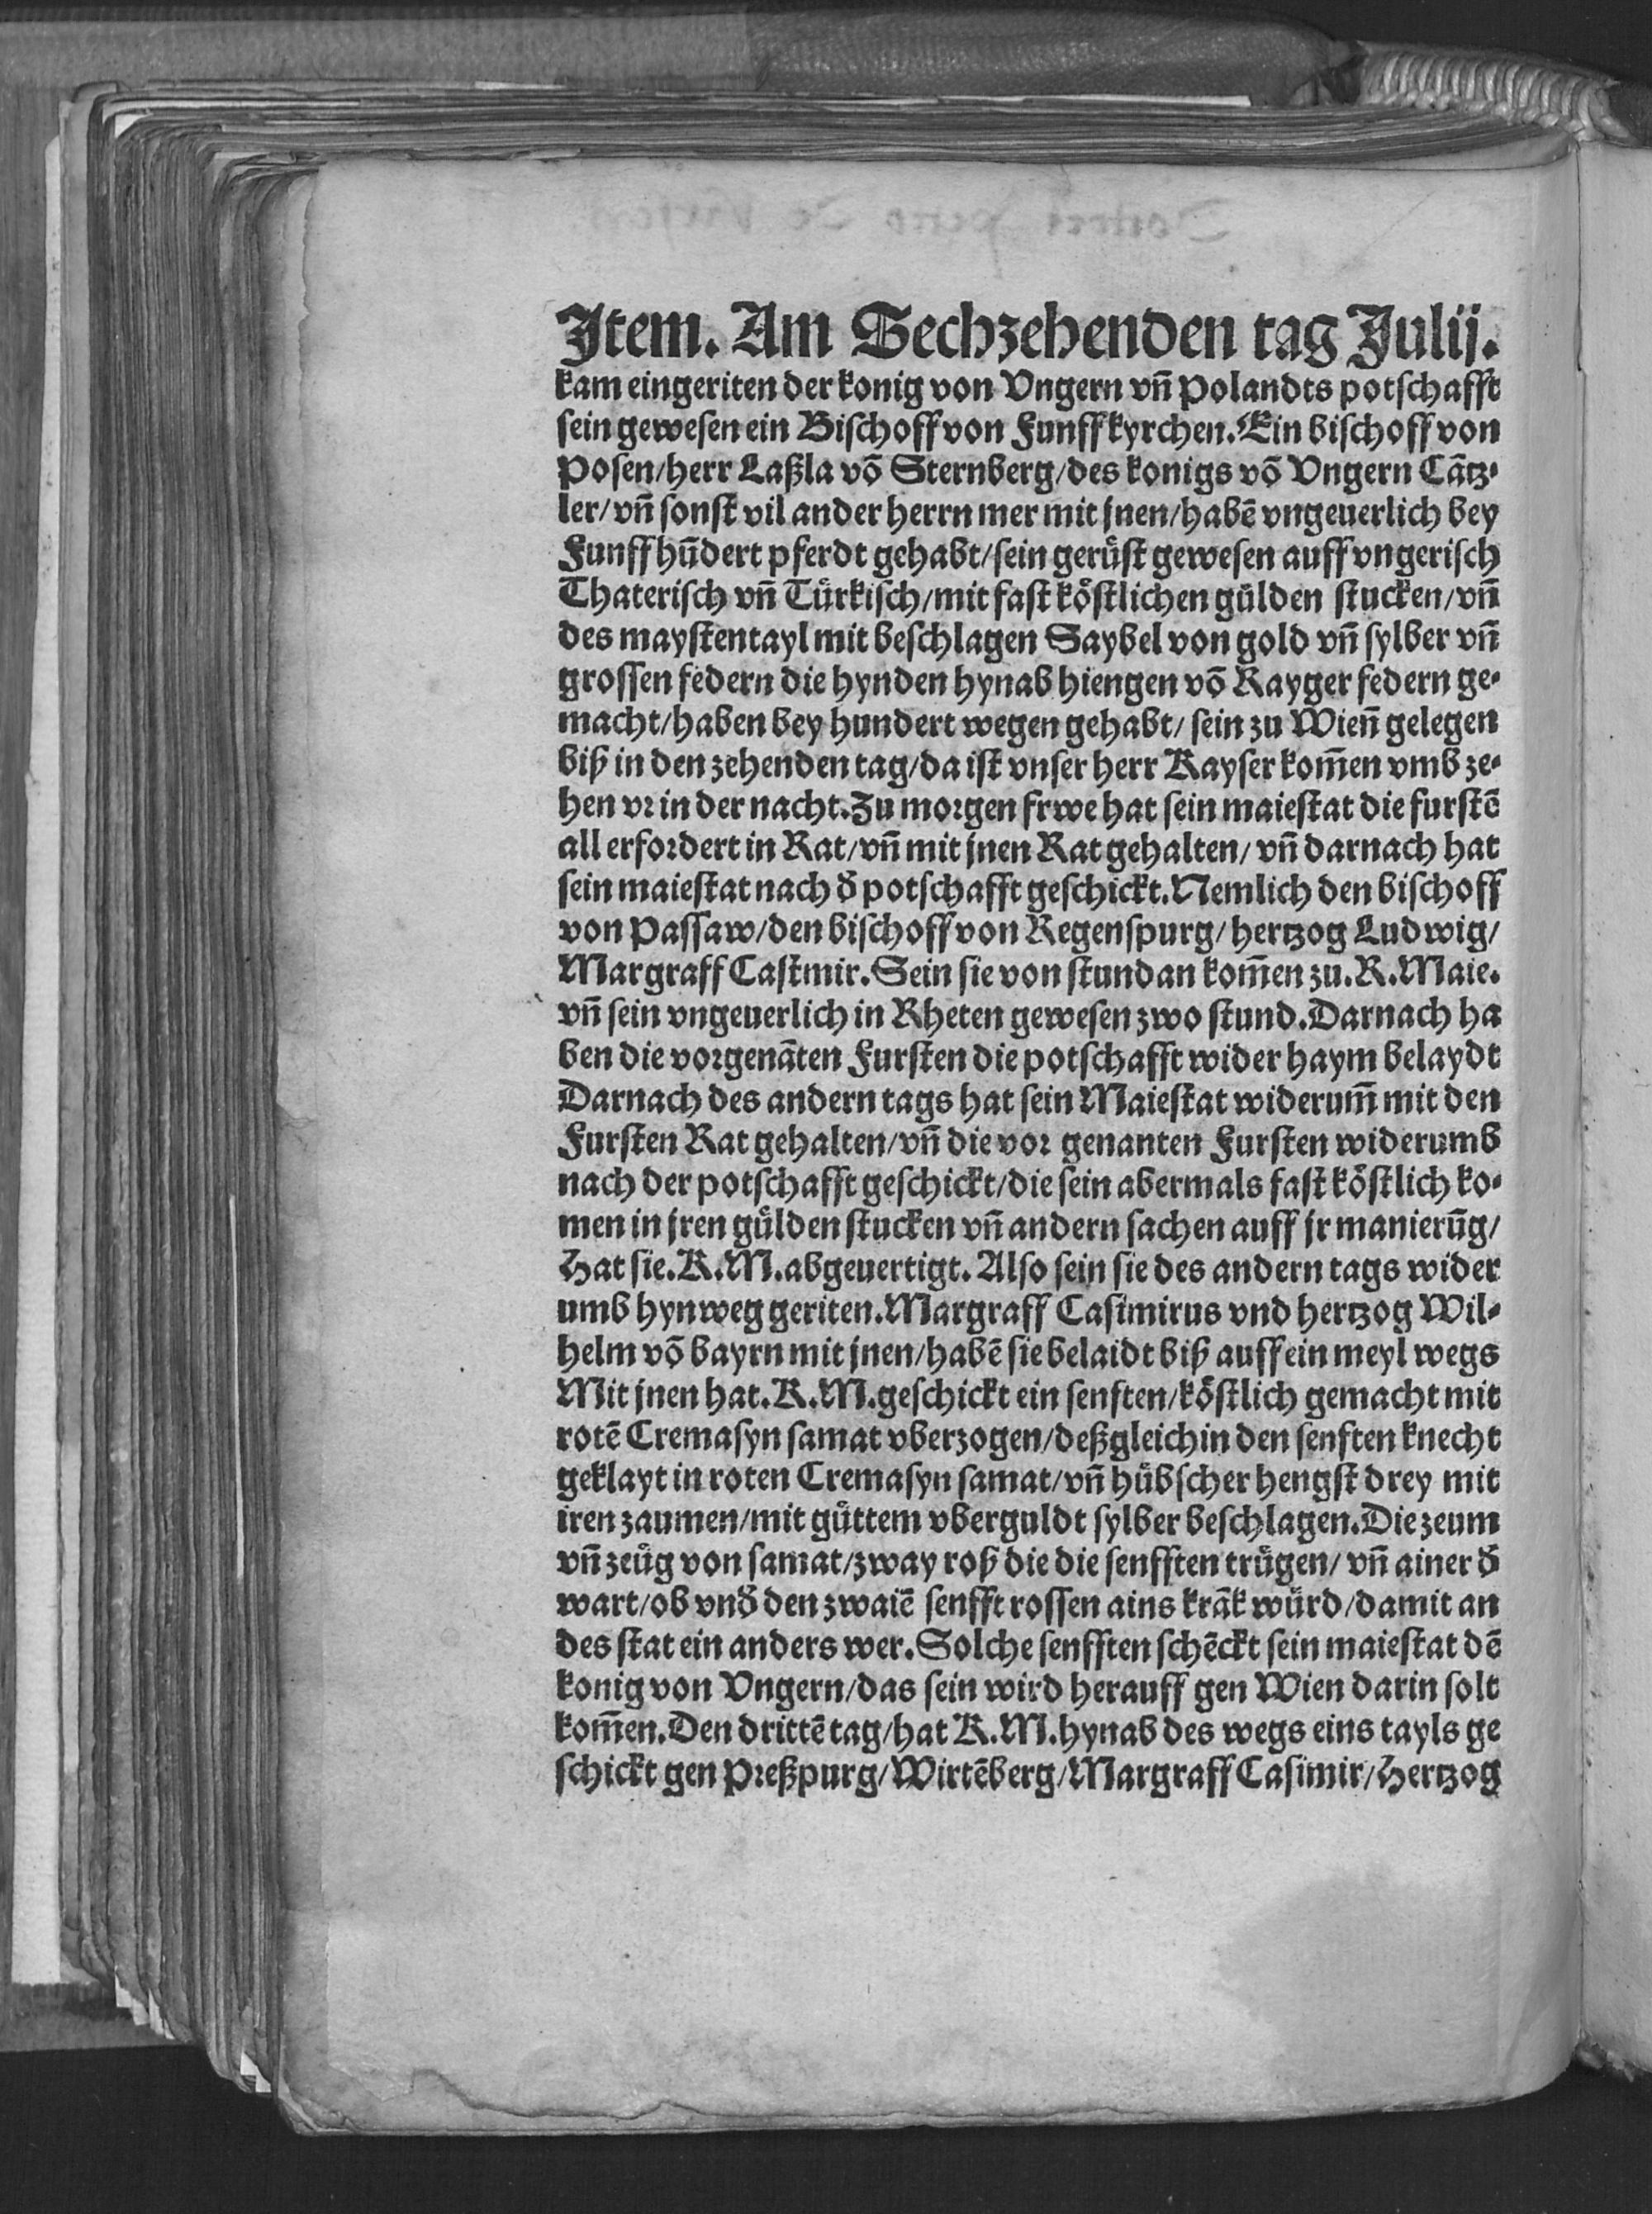 Jtem. Am Sechzehenden tag Julij.
kam eingeriten der konig von Vngern vñ Polandts potschafft
sein gewesen ein Bischoff von Funffkyrchen. Ein bischoff von
Posen/herr Laßla võ Sternberg/des konigs võ Vngern Cãtz⸗
ler/vñ sonst vil ander herrn mer mit jnen/habẽ vngeuerlich bey
Funffhũdert pferdt gehabt/sein gerüst gewesen auff vngerisch
Thaterisch vñ Türkisch/mit fast köstlichen gülden stucken/vñ
des maysten tayl mit beschlagen Saybel von gold vñ sylber vñ
grossen federn die hynden hynab hiengen võ Rayger federn ge⸗
macht/haben bey hundert wegen gehabt/sein zu Wieñ gelegen
biß in den zehenden tag/da ist vnser herr Kayser kom̃en vmb ze⸗
hen vr in der nacht. Zu morgen frwe hat sein maiestat die furstẽ
all erfordert in Rat/vñ mit jnen Rat gehalten/vñ darnach hat
sein maiestat nach d̄ potschafft geschickt. Nemlich den bischoff
von Passaw/den bischoff von Regenspurg/hertzog Ludwig/
Margraff Castmir. Sein sie von stund an kom̃en zu. K. Maie.
vñ sein vngeuerlich in Rheten gewesen zwo stund. Darnach ha
ben die vorgenãten Fursten die potschafft wider haym belaydt
Darnach des andern tags hat sein Maiestat widerum̃ mit den
Fursten Rat gehalten/vñ die vor genanten Fursten widerumb
nach der potschafft geschickt/die sein abermals fast köstlich ko⸗
men in jren gülden stucken vñ andern sachen auff jr manierũg/
Hat sie. K. M. abgeuertigt. Also sein sie des andern tags wider
umb hynweg geriten. Margraff Casimirus vnd hertzog Wil⸗
helm võ bayrn mit jnen/habẽ sie belaidt biß auff ein meyl wegs
Mit jnen hat. K. M. geschickt ein senften/köstlich gemacht mit
rotẽ Cremasyn samat vberzogen/deßgleich in den senften knecht
geklayt in roten Cremasyn samat/vñ hübscher hengst drey mit
iren zaumen/mit güttem vberguldt sylber beschlagen. Die zeum
vñ zeüg von samat/zway roß die die senfften trügen/vñ ainer d̄
wart/ob vnd̄ den zwaiẽ senfft rossen ains krãk würd/damit an
des stat ein anders wer. Solche senfften schẽckt sein maiestat dẽ
konig von Vngern/das sein wird herauff gen Wien darin solt
kom̃en. Den drittẽ tag/hat K. M. hynab des wegs eins tayls ge
schickt gen Preßpurg/Wirtẽberg/Margraff Casimir/Hertzog